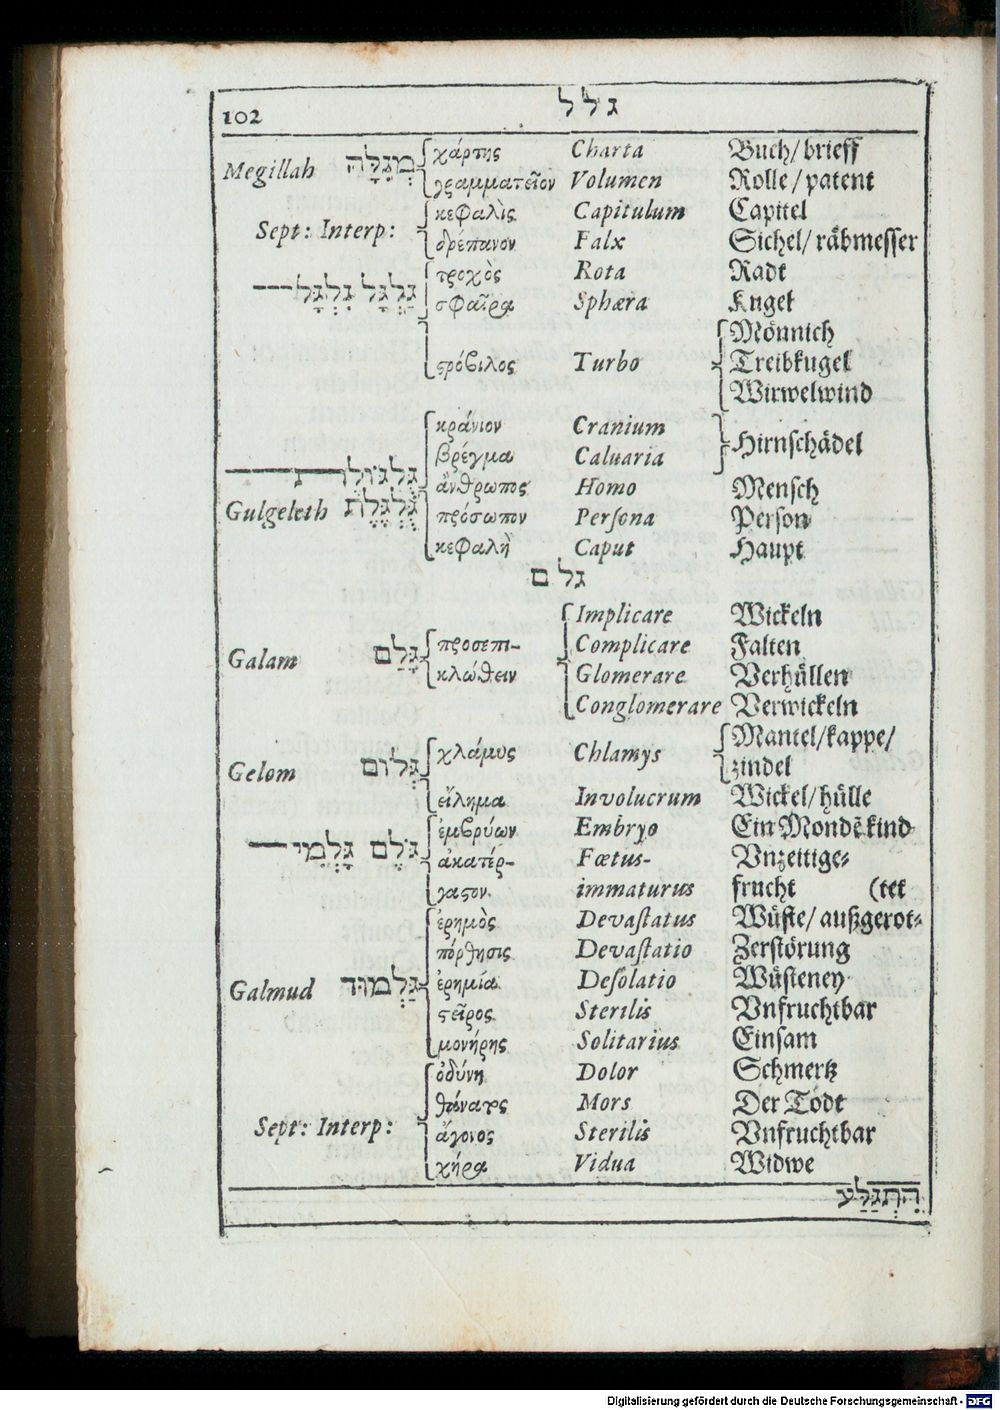 102 גלל
Megillah מְגִלָּה χάρτης Charta Buch/ brieff
γραμματεῖον Volumen Rolle/ patent
Sept: Interp: κεφαλὶς Capitulum Capitel
δρέπανον Falx Sichel/ råbmesser
גַלְגַל גִלְגָל τροχὸς Rota Radt
σφαῖρα Sphæra Kugel
ϛρόβιλος Turbo Mönnich
Treibkugel
Wirwelwind
κράνιον Cranium Hirnschådel
βρέγμα Caluaria
גֻלְגּוֹלֶות ἄνθρωπος Homo Mensch
Gulgeleth גֻּלְגֶּלֶת πρόσωπον Perſona Person
κεφαλὴ Caput Haupt
גלם
Implicare Wickeln
Galam גָּלַם προσεπι- Complicare Falten
κλώθειν Glomerare Verhůllen
Conglomerare Verwickeln
Gelom גְּלוֹם χλάμυς Chlamys Mantel/kappe/
zindel
εἴλημα Involucrum Wickel/ hůlle
גֹּלֶם גָּלְמִי ἐμβρύων Embryo Ein Mondẽkind
ἀκατέρ- Fœtus- Vnzeitige-
γαϛον immaturus frucht (tet
ἐρημὸς Devaſtatus Wůste/ außgerot-
πόρθησις Devaſtatio Zerstörung
Galmud גַּלְמוּד ἐρημία Deſolatio Wůsteney
ϛεῖρος Sterilis Vnfruchtbar
μονήρης Solitarius Einsam
ὀδύνη Dolor Schmertz
θάνατος Mors Der Tödt
Sept: Interp: ἄγονος Sterilis Vnfruchtbar
χήρα Vidua Widwe
הִתְגַלַּע
Digitalisierung gefördert durch die Deutsche Forschungsgemeinschaft - DFG